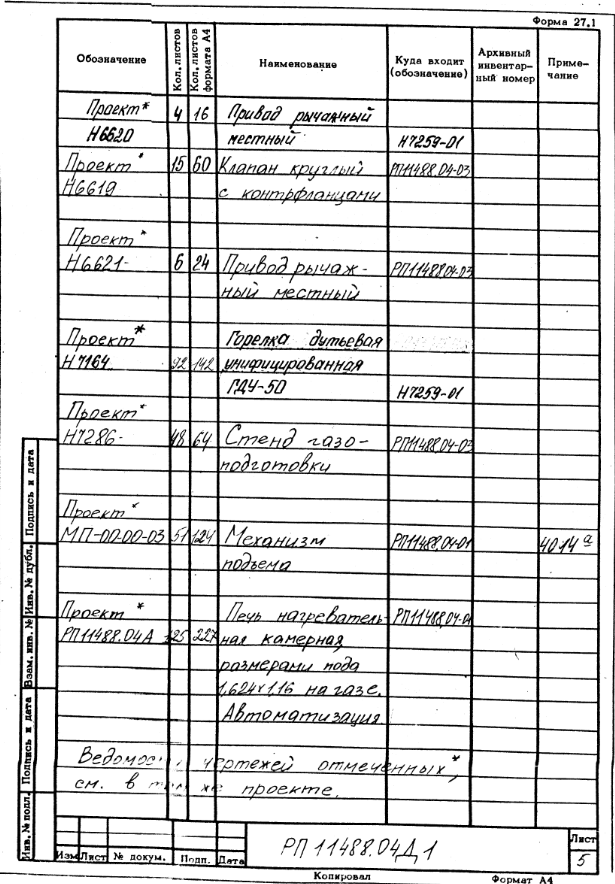 Форма 27.1
Обозначение Кол. листов Кол. листов формата А4 Наименование Куда входит (обозначение) Архивный инвентарный номер Примечание
Проект* 4 16 Привод рычажный
Н6620 местный Н7259-01
Проект* 15 60 Клапан круглый РП11488.04-03
Н6619 с контрфланцами
Проект*
Н6621- 6 24 Привод рычаж- РП11488.04-03
ный местный
Проект* Горелка дутьевая
Н7164 92 142 унифицированная
ГДУ-50 Н7259-01
Проект*
Н7286- 48 64 Стенд газо- РП11488.04-03
подготовки
Проект*
МП-00-00-03 51 124 Механизм РП11488.04-01 4014а
подъема
Проект* Печь нагреватель- РП11488.04-01
РП11488.04А 227 ная камерная,
размерами пода
1,624х1,16 на газе.
Автоматизация
чертежей отмеченных*,
см. в проекте.
Инв. № подл. Подпись и дата Взам. инв. № Инв. № дубл. Подпись и дата
РП 11488.04Д1
Изм Лист № докум. Подп. Дата
Лист
5
Копировал Формат А4